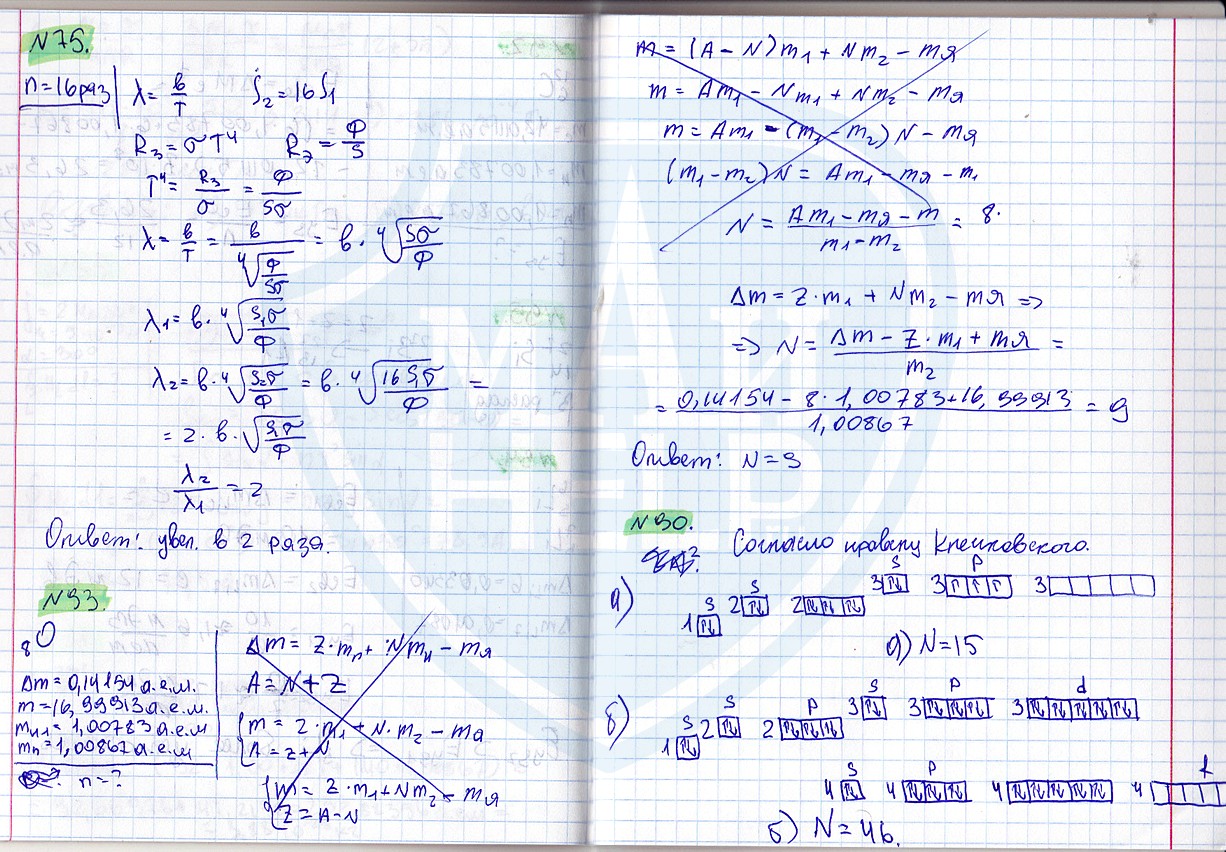 N75.
n=16раз
λ = в/T
S₂ = 16S₁
Rэ = σT⁴  Rэ = Ф/S
T⁴ = Rэ/σ = Ф/Sσ
λ = в/T = в/⁴√(Ф/Sσ) = в · ⁴√(Sσ/Ф)
λ₁ = в · ⁴√(S₁σ/Ф)
λ₂ = в · ⁴√(S₂σ/Ф) = в · ⁴√(16S₁σ/Ф) =
= 2 · в · √(S₁σ/Ф)
λ₂/λ₁ = 2
Ответ: увел. в 2 раза.
N93.
₈O
Δm = 0,14154 а.е.м.
m = 16,99913 а.е.м.
mн1 = 1,00783 а.е.м
mn = 1,00867 а.е.м
n = ?
Δm = Z · mp + Nmн − mя
A = N + Z
{m = Z · m₁ + N · m₂ − mа
A = Z + N
{m = Z · m₁ + Nm₂ − mя
Z = A − N
m = (A − N)m₁ + Nm₂ − mя
m = Am₁ − Nm₁ + Nm₂ − mя
m = Am₁ − (m₁ − m₂)N − mя
(m₁ − m₂)N = Am₁ − mя − m₁
N = (Am₁ − mя − m)/(m₁ − m₂) = 8.
Δm = Z · m₁ + Nm₂ − mя =>
=> N = (Δm − Z · m₁ + mя)/m₂ =
= (0,14154 − 8 · 1,00783 + 16,99913)/1,00867 = 9
Ответ: N = 9
N90.
Согласно правилу Клечковского.
а)
1 s ↑↓ 2 s ↑↓ 2 ↑↓ ↑↓ ↑↓ 3 s ↑↓ 3 p ↑ ↑ ↑ 3
а) N = 15
б)
1 s ↑↓ 2 s ↑↓ 2 p ↑↓ ↑↓ ↑↓ 3 s ↑↓ 3 p ↑↓ ↑↓ ↑↓ 3 d ↑↓ ↑↓ ↑↓ ↑↓ ↑↓
4 s ↑↓ 4 p ↑↓ ↑↓ ↑↓ 4 ↑↓ ↑↓ ↑↓ ↑↓ ↑↓ 4 f
б) N = 46.